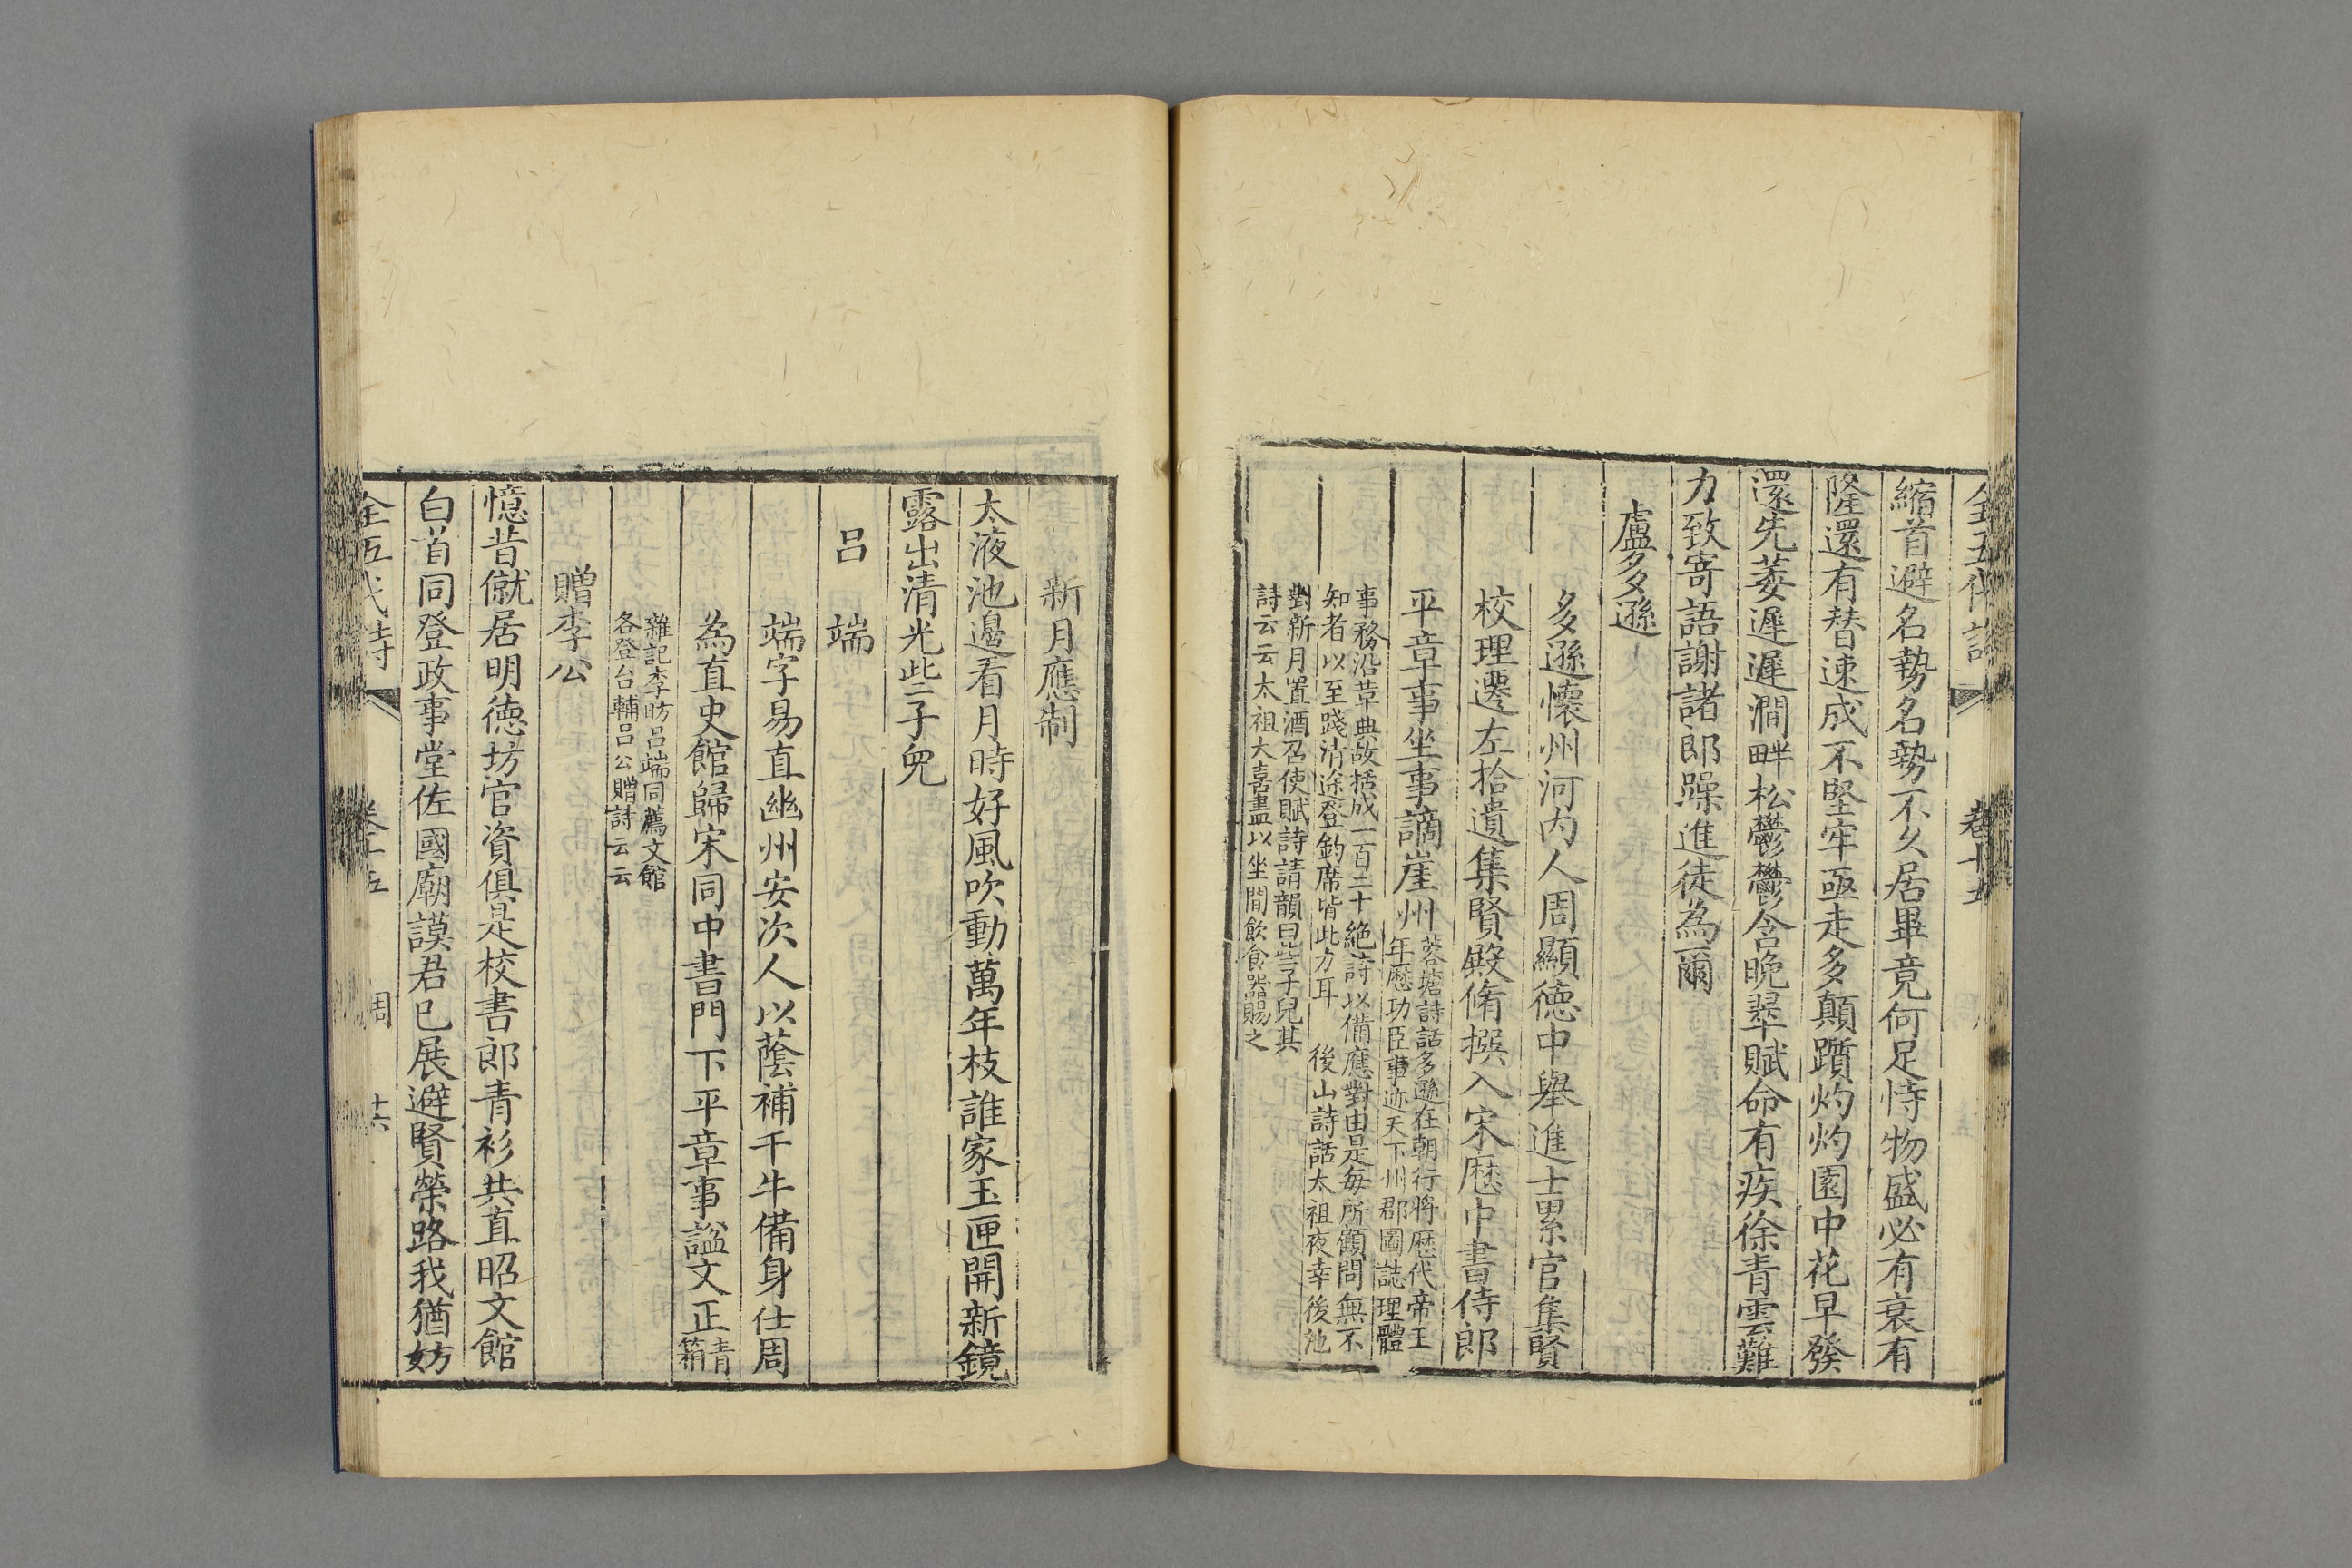 縮首避名勢名勢不久居畢竟何足恃物盛必有衰有
隆還有替速成不堅牢亟走多顛躓灼灼園中花早發
還先萎遲遲澗畔松鬱鬱含晚翠賦命有疾徐青雲難
力致寄語謝諸郎躁進徒為爾
盧多遜
多遜懷州河内人周顯徳中舉進士累官集賢
校理遷左拾遺集賢殿脩撰入宋歴中書侍郎
平章事坐事謫崖州
蓉塘詩話多遜在朝行將歴代帝王
年歴功臣事迹天下州郡圖誌理體
事務沿革典故括成一百二十絶詩以備應對由是每所顧問無不
知者以至踐清途登鈞席皆此力耳　後山詩話太祖夜幸後池
對新月置酒召使賦詩請韻曰些子兒其
詩云云太祖大喜盡以坐間飲食器賜之
新月應制
太液池邊看月時好風吹動萬年枝誰家玉匣開新鏡
露出清光些子兒
吕　端
端字易直幽州安次人以蔭補千牛備身仕周
為直史館歸宋同中書門下平章事謚文正
青
箱
雜記李昉吕端同薦文館
各登台輔吕公贈詩云云
贈李公
憶昔僦居明徳坊官資俱是校書郎青衫共直昭文館
白首同登政事堂佐國廟謨君已展避賢榮路我猶妨
全五代詩　卷十五　周　十六